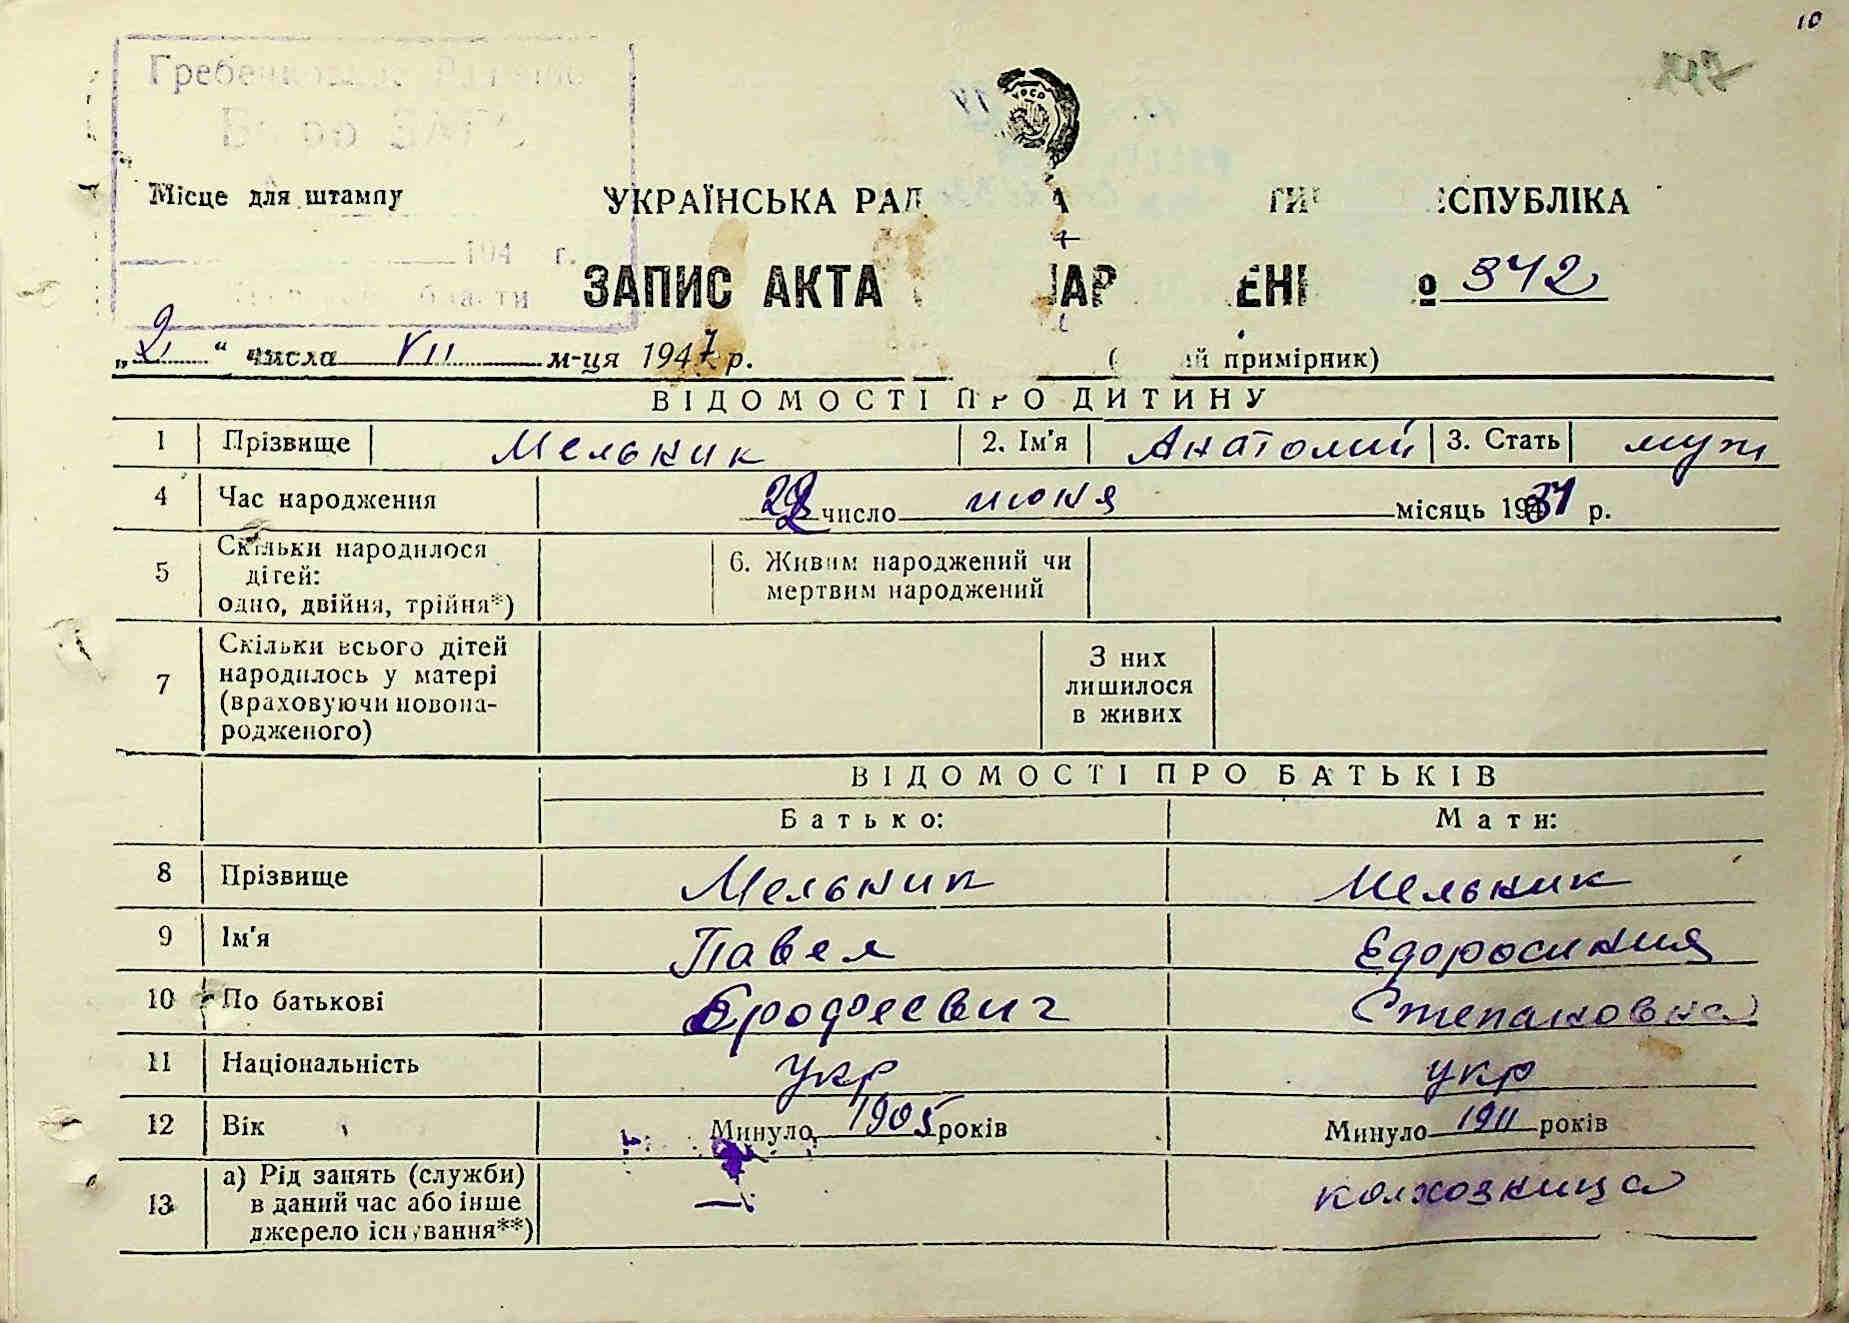 10
Місце для штампу
УКРАЇНСЬКА
ЗАПИС АКТА № 342
„2“ числа VII м-ця 1947 р. примірник)
ВІДОМОСТІ ПРО ДИТИНУ
1 Прізвище Мельник 2. Ім'я Анатолий 3. Стать муж
4 Час народження число июня місяць р.
5 Скільки народилося дітей: одно, двійня, трійня*) 6. Живим народжений чи мертвим народжений
7 Скільки всього дітей народилось у матері (враховуючи новонародженого) З них лишилося в живих
ВІДОМОСТІ ПРО БАТЬКІВ
Батько: Мати:
8 Прізвище Мельник Мельник
9 Ім'я Павел
10 По батькові Степановна
11 Національність укр укр
12 Вік Минуло 1905 років Минуло 1911 років
13 а) Рід занять (служби) в даний час або інше джерело існування**) — колхозница